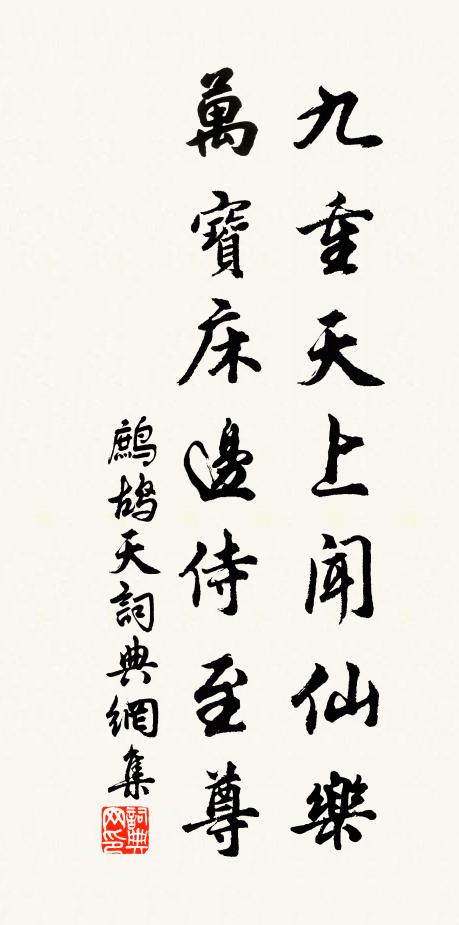 九重天上聞仙樂
萬寶床邊侍至尊
鷓鴣天詞典網集
詞典网印